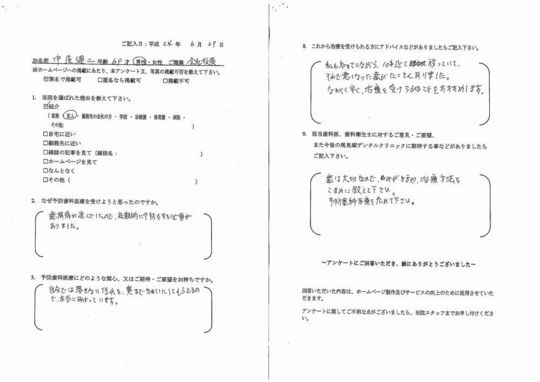 ご記入日：平成 24 年 6 月 29 日
お名前 年齢 69 才 男性・女性 ご職業 会社役員
※ホームページへの掲載にあたり、本アンケート又、写真の掲載可否を教えて下さい。
☑実名で掲載可 □匿名なら掲載可 □掲載不可
1. 当院を選ばれた理由を教えて下さい。
☑紹介
（家族 友人 勤務先の会社の方・学校・幼稚園・保育園・病院・
その他 ）
□自宅に近い
□勤務先に近い
□雑誌の記事を見て（雑誌名： ）
□ホームページを見て
□なんとなく
□その他（ ）
2. なぜ予防歯科医療を受けようと思ったのですか。
歯周病が進んでいたので、定期的に予防をする必要が
ありました。
3. 予防歯科医療にどのような関心、又はご期待・ご要望をお持ちですか。
自分では
で、本当に助かっています。
8. これから治療を受けられる方にアドバイスなどがありましたらご記入下さい。
私も知っていながら、10年近く 放っていて、
それで悪くなった歯がたくさんありました。
なるべく早く、治療を受けることをおすすめします。
9. 担当歯科医、歯科衛生士に対するご意見・ご要望、
また今後の馬見塚デンタルクリニックに期待する事などがありましたら
ご記入下さい。
歯は大切なので、 治療方法を
こまめに教えて下さい。
予防歯科医療を広めて下さい。
～アンケートにご回答いただき、誠にありがとうございました～
回答いただいた内容は、ホームページ製作及びサービスの向上のために活用させていた
だきます。
アンケートに関してご不明な点がございましたら、当院スタッフまでお申し付けくださ
い。